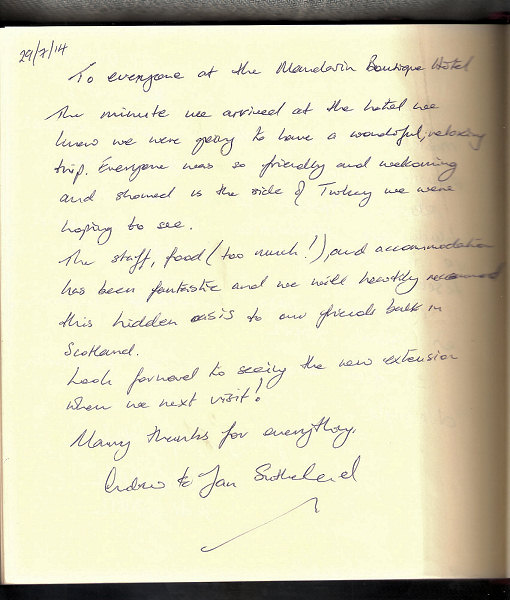 29/7/14
To everyone at the Mandarin Boutique Hotel
The minute we arrived at the hotel we
knew we were going to have a wonderful, relaxing
trip. Everyone was so friendly and welcoming
and showed us the side of Turkey we were
hoping to see.
The staff, food (too much!), and accommodation
has been fantastic and we will heartily recommend
this hidden oasis to our friends back in
Scotland.
Look forward to seeing the new extension
when we next visit!
Many thanks for everything.
Andrew & Jan Sutherland